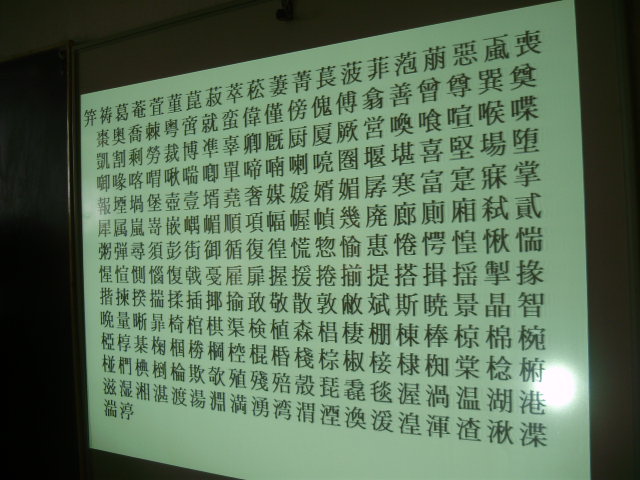 笄祷葛菴萓菫菎菽萃菘萋菁萇菠菲萢萠惡喪
棗奧喬棘粤啻就蛮偉僅傍傀傅翕善曾尊巽奠
凱割剰勞裁博凖辜卿厩厨厦厥営喚喰喧喉喋
啣喙喀喟啾喘喞單啼喃喇喨圏堰堪喜堅場堕
報堙堝堡壺壹壻堯奢媒媛婿媚孱寒富寔寐掌
犀属嵐嵜嵌嵎嵋順項幅幄幀幾廃廊廁廂弑貳
粥弾尋須彭街御循復徨慌惣愉惠惓愕惶愀惴
惺愃惻惱愎戟戞雇扉握援捲揃提搭揖揺掣掾
揩揀揆揣揉插揶揄敢敬散敦敝斌斯暁景晶智
晩量晰晷椅棺棋渠検植森椙棲棚棟棒椋棉椀
椏椁棊椈棡椌棍棔棧棕椒椄棣椥棠棯椨
椪椚椣椡棆欺欹殖殘殕殼琵毳毯渥渦温湖港
滋湿湘湛渡湯淵満湧湾渭湮渙湲湟渾渣湫渫
湍渟